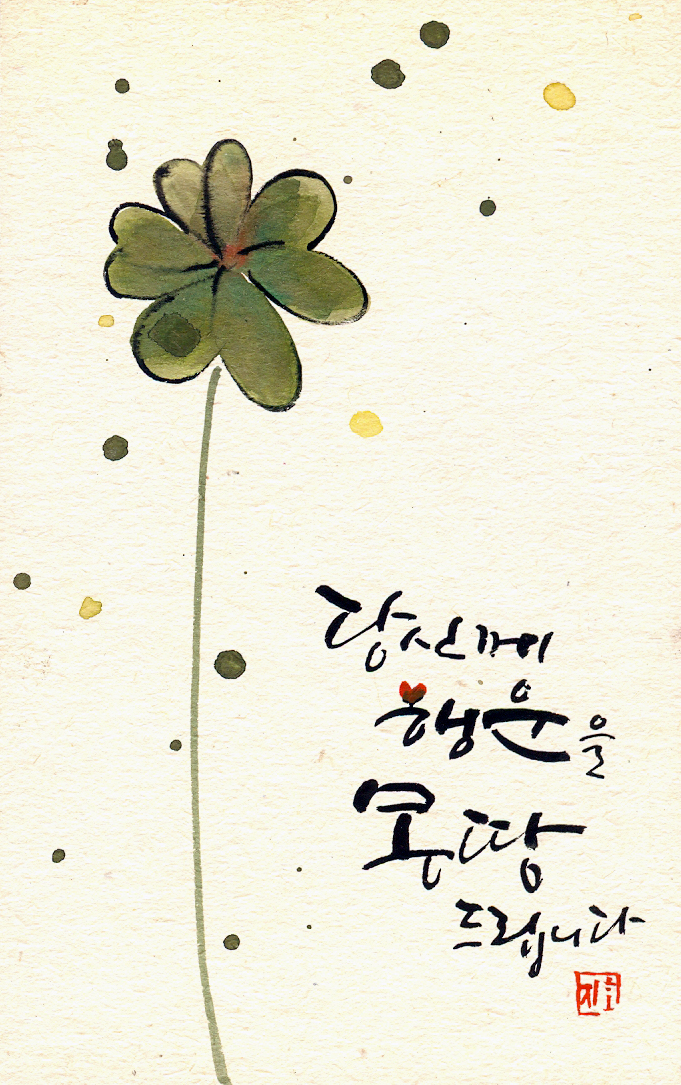 당신께
행운을
몽땅
드립니다